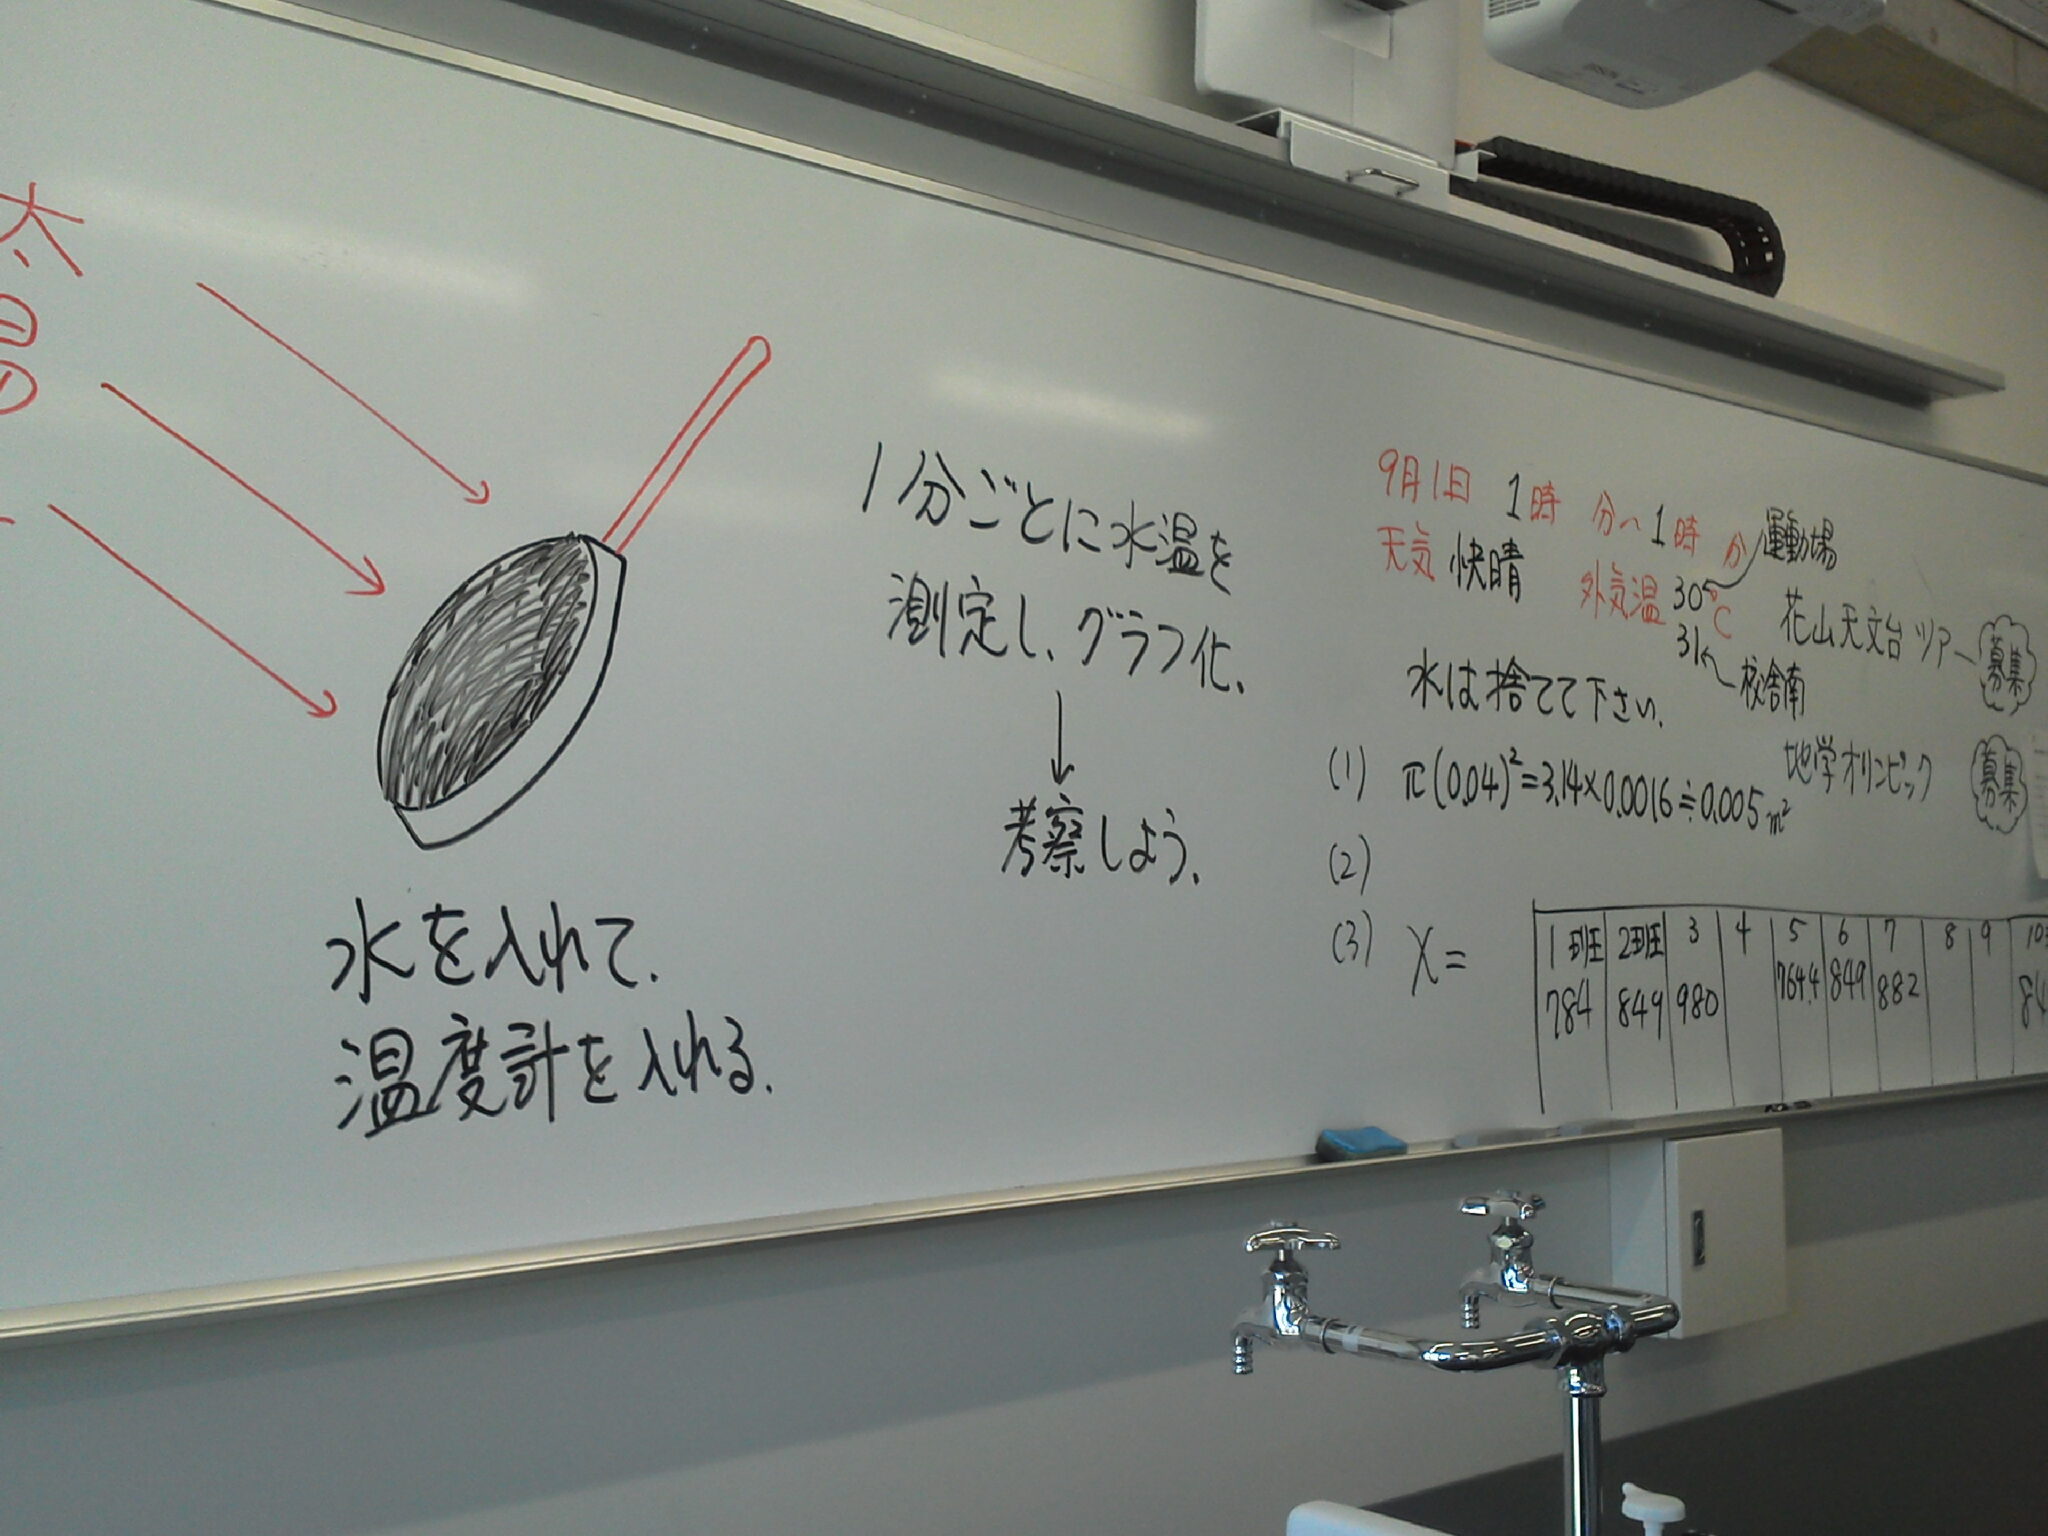 太
陽
水を入れて、
温度計を入れる、
1分ごとに水温を
測定し、グラフ化、
↓
考察しよう、
9月1日 1時 分〜1時 分
天気 快晴 外気温 30℃ 運動場
31 校舎南
花山天文台ツアー 募集
水は捨てて下さい、
地学オリンピック 募集
(1) π(0.04)²=3.14×0.0016≒0.005m²
(2)
(3) X=
1班 2班 3 4 5 6 7 8 9 10
784 849 980 764.4 849 882
EPSON